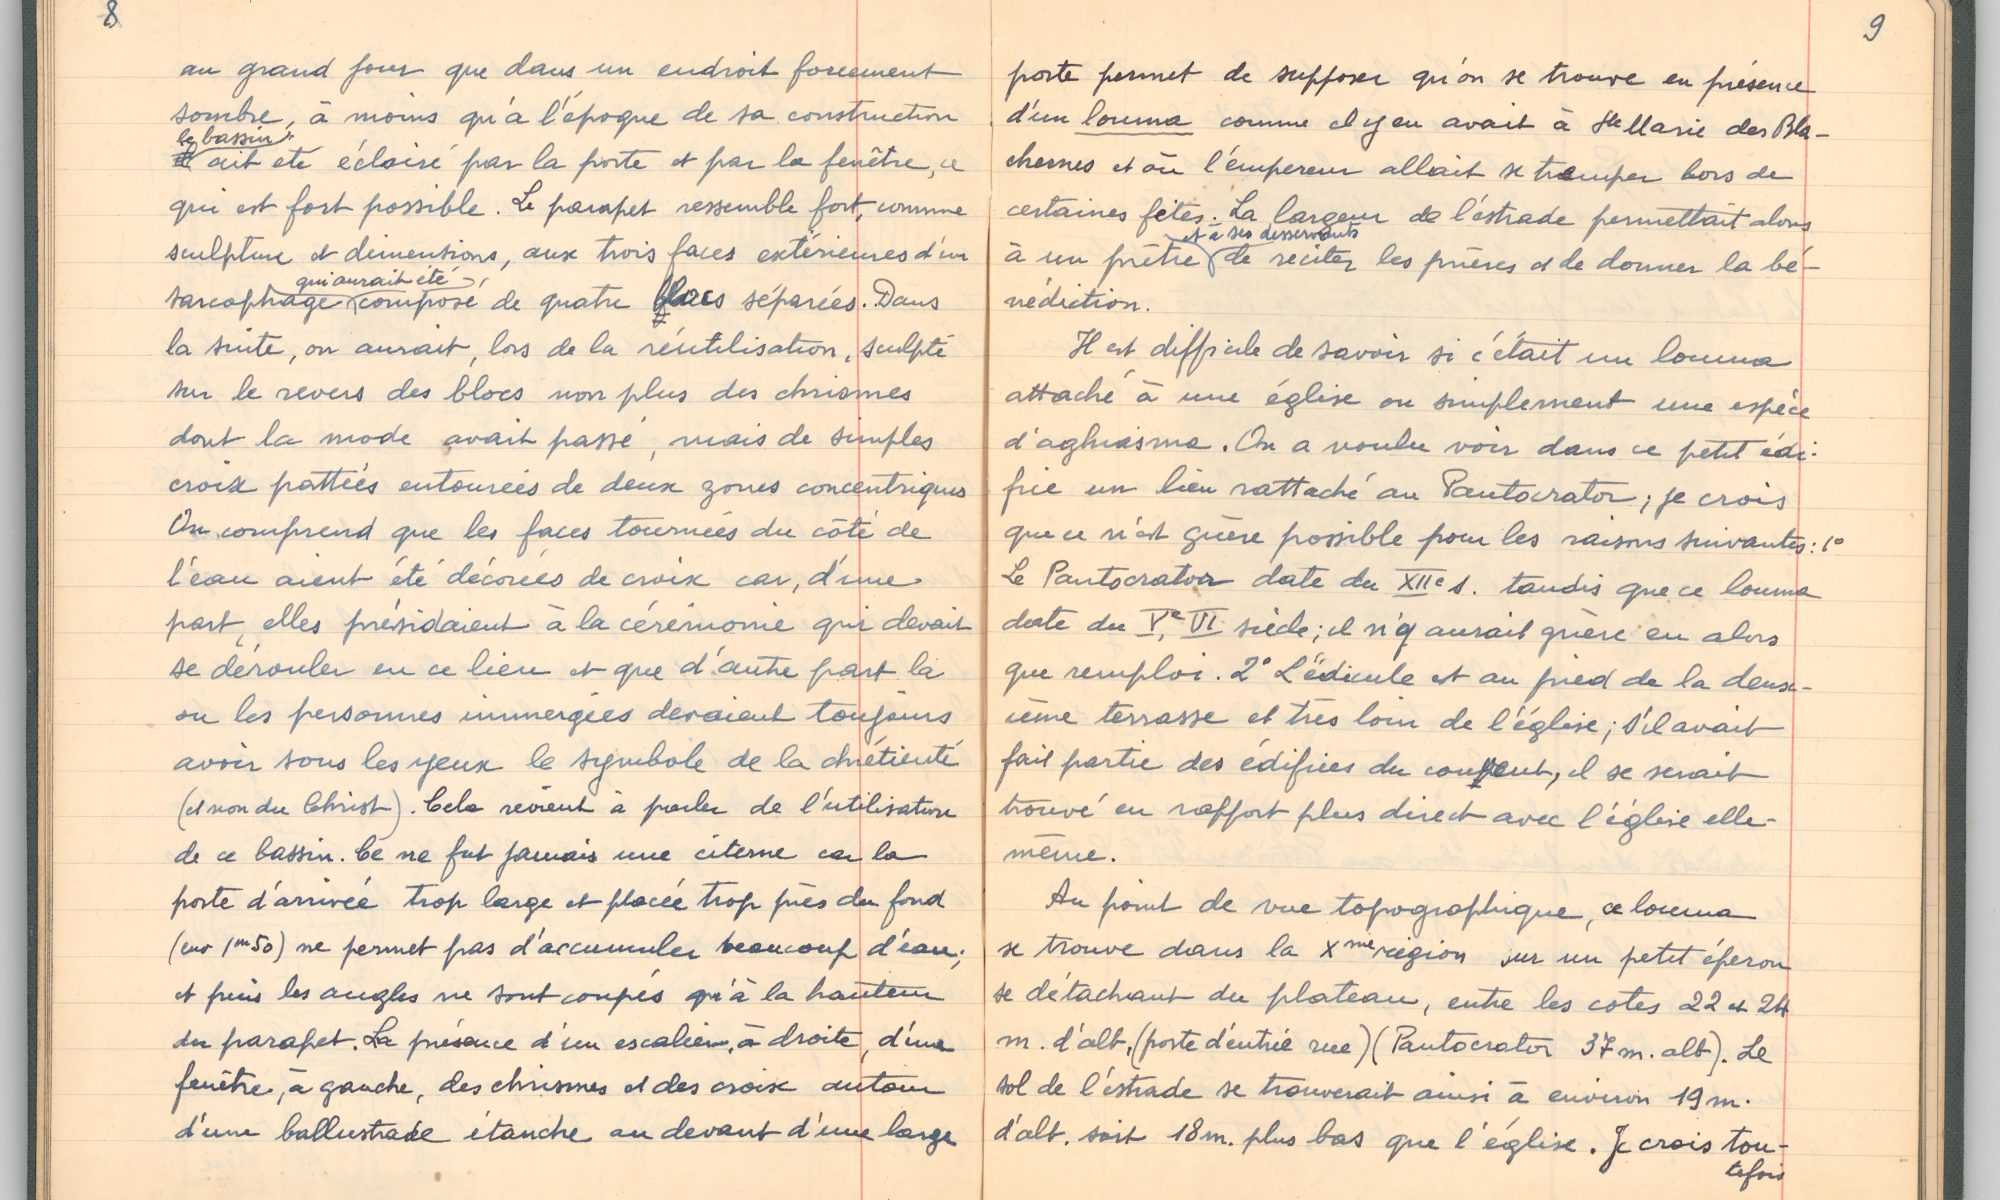 8
au grand jour que dans un endroit forcement
sombre, à moins qu'à l'époque de sa construction
le bassin
ait eté éclairé par la porte et par la fenêtre, ce
qui est fort possible. Le parapet ressemble fort, comme
sculpture et dimensions, aux trois faces extérieures d'un
qui aurait été
sarcophage composé de quatre blocs séparées. Dans
la suite, on aurait, lors de la réutilisation, sculpté
sur le revers des blocs non plus des chrismes
dont la mode avait passé, mais de simples
croix pattées entourées de deux zones concentriques
On comprend que les faces tournées du côté de
l'eau aient été décorées de croix car, d'une
part, elles présidaient à la cérémonie qui devait
se dérouler en ce lieu et que d'autre part la
ou les personnes immergées devaient toujours
avoir sous les yeux le symbole de la chrétienté
(et non du Christ). Cela revient à parler de l'utilisation
de ce bassin. Ce ne fut jamais une citerne car la
porte d'arrivée trop large et placée trop près du fond
(env 1m50) ne permet pas d'accumuler beaucoup d'eau;
et puis les angles ne sont coupés qu'à la hauteur
du parapet. La présence d'un escalier, à droite, d'une
fenêtre, à gauche, des chrismes et des croix autour
d'une ballustrade étanche au devant d'une large
9
porte permet de supposer qu'on se trouve en présence
d'un louma comme il y en avait à Ste Marie des Bla-
chernes et où l'empereur allait se tremper lors de
certaines fêtes. La largeur de l'éstrade permettait alors
et à ses desservants
à un prêtre de réciter les prières et de donner la bé-
nédiction.
Il est difficile de savoir si c'était un louma
attaché à une église ou simplement une espèce
d'aghiasma. On a voulu voir dans ce petit édi-
fice un lieu rattaché au Pantocrator; je crois
que ce n'est guère possible pour les raisons suivantes: 1°
Le Pantocrator date du XIIe s. tandis que ce louma
date du Ve, VI siècle; il n'y aurait guère eu alors
que remploi. 2° L'édicule est au pied de la deux-
ième terrasse et très loin de l'église; s'il avait
fait partie des édifices du couvent, il se serait
trouvé en rapport plus direct avec l'église elle-
même.
Au point de vue topographique, ce louma
se trouve dans la Xme région sur un petit éperon
se détachant du plateau, entre les cotes 22 et 24
m. d'alt. (porte d'entrée rue) (Pantocrator 37 m. alt). Le
sol de l'éstrade se trouverait ainsi à environ 19 m.
d'alt. soit 18 m. plus bas que l'église. Je crois tou-
tefois